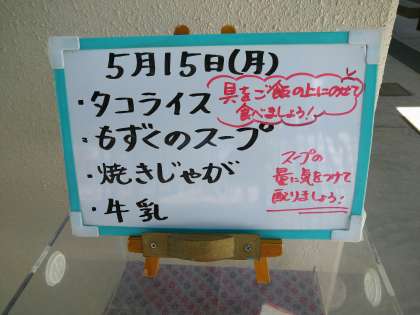 5月15日(月)
・タコライス
具をご飯の上にのせて
食べましょう!
・もずくのスープ
・焼きじゃが
スープの
量に気をつけて
配りましょう!
・牛乳